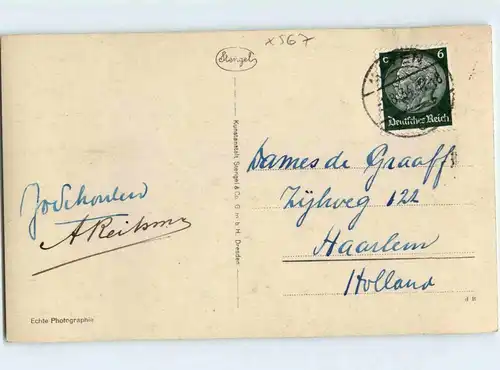 x 567
Stengel
6
Deutsches Reich
Kunstanstalt Stengel & Co. G. m. b. H., Dresden
Dames de Graaff
Zijlweg 122
Haarlem
Holland
Echte Photographie